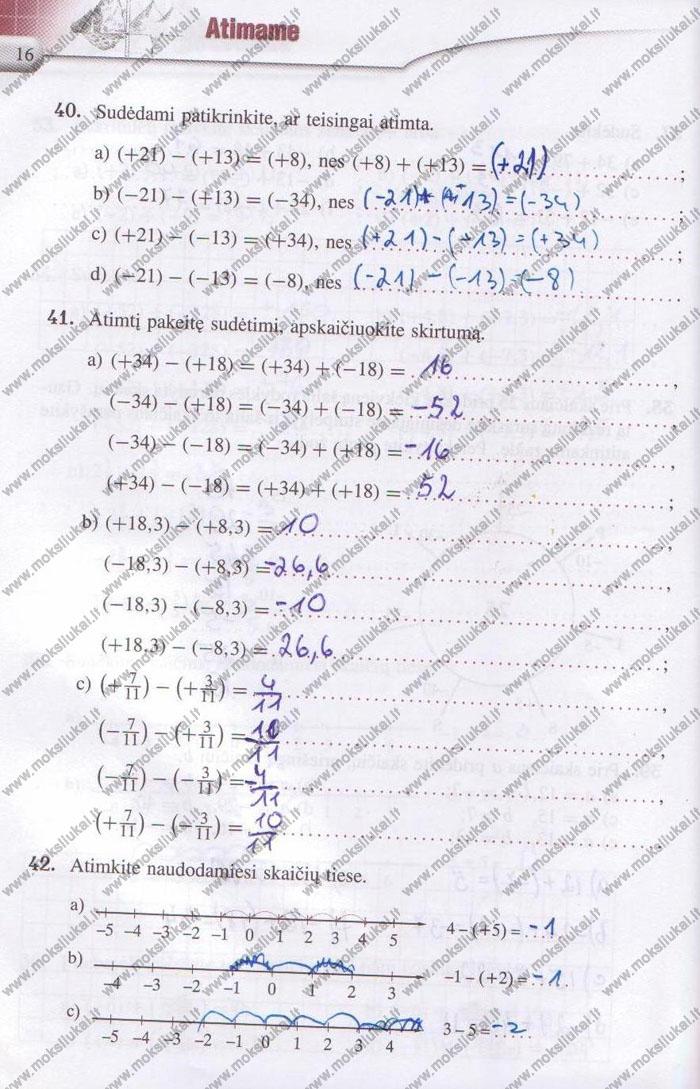 Atimame
16
40. Sudėdami patikrinkite, ar teisingai atimta.
a) (+21) − (+13) = (+8), nes (+8) + (+13) = (+21) ;
b) (−21) − (+13) = (−34), nes (−21) + (−13) = (−34) ;
c) (+21) − (−13) = (+34), nes (+21) − (−13) = (+34) ;
d) (−21) − (−13) = (−8), nes (−21) − (−13) = (−8)
41. Atimtį pakeitę sudėtimi, apskaičiuokite skirtumą.
a) (+34) − (+18) = (+34) + (−18) = 16 ,
(−34) − (+18) = (−34) + (−18) = −52 ,
(−34) − (−18) = (−34) + (+18) = −16 ,
(+34) − (−18) = (+34) + (+18) = 52 ;
b) (+18,3) − (+8,3) = 10 ,
(−18,3) − (+8,3) = −26,6 ,
(−18,3) − (−8,3) = −10 ,
(+18,3) − (−8,3) = 26,6 ;
c) (+7/11) − (+3/11) = 4/11 ,
(−7/11) − (+3/11) = −10/11 ,
(−7/11) − (−3/11) = −4/11 ,
(+7/11) − (−3/11) = 10/11 .
42. Atimkite naudodamiesi skaičių tiese.
a) −5 −4 −3 −2 −1 0 1 2 3 4 5 4 − (+5) = −1
b) −4 −3 −2 −1 0 1 2 3 −1 − (+2) = −1
c) −5 −4 −3 −2 −1 0 1 2 3 4 3 − 5 = −2
www.moksliukai.lt